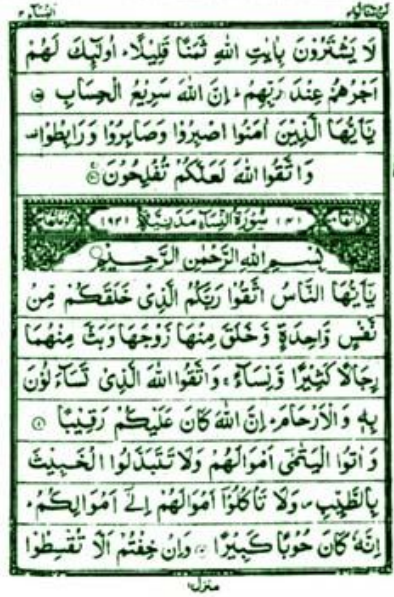 النساء ٤ لن تنالوا ٤
لَا يَشْتَرُوْنَ بِاٰيٰتِ اللّٰهِ ثَمَنًا قَلِيْلًا ؕ اُولٰٓئِكَ لَهُمْ
اَجْرُهُمْ عِنْدَ رَبِّهِمْ ؕ اِنَّ اللّٰهَ سَرِيْعُ الْحِسَابِ
يٰۤاَيُّهَا الَّذِيْنَ اٰمَنُوا اصْبِرُوْا وَصَابِرُوْا وَرَابِطُوْا
وَاتَّقُوا اللّٰهَ لَعَلَّكُمْ تُفْلِحُوْنَ
سُوْرَةُ النِّسَآءِ مَدَنِيَّةٌ
بِسْمِ اللّٰهِ الرَّحْمٰنِ الرَّحِيْمِ
يٰۤاَيُّهَا النَّاسُ اتَّقُوْا رَبَّكُمُ الَّذِيْ خَلَقَكُمْ مِّنْ
نَّفْسٍ وَّاحِدَةٍ وَّخَلَقَ مِنْهَا زَوْجَهَا وَبَثَّ مِنْهُمَا
رِجَالًا كَثِيْرًا وَّنِسَآءً ۚ وَاتَّقُوا اللّٰهَ الَّذِيْ تَسَآءَلُوْنَ
بِهٖ وَالْاَرْحَامَ ؕ اِنَّ اللّٰهَ كَانَ عَلَيْكُمْ رَقِيْبًا ۱
وَاٰتُوا الْيَتٰمٰۤى اَمْوَالَهُمْ وَلَا تَتَبَدَّلُوا الْخَبِيْثَ
بِالطَّيِّبِ ۪ وَلَا تَاْكُلُوْۤا اَمْوَالَهُمْ اِلٰۤى اَمْوَالِكُمْ ؕ
اِنَّهٗ كَانَ حُوْبًا كَبِيْرًا ۲ وَاِنْ خِفْتُمْ اَلَّا تُقْسِطُوْا
منزل۱